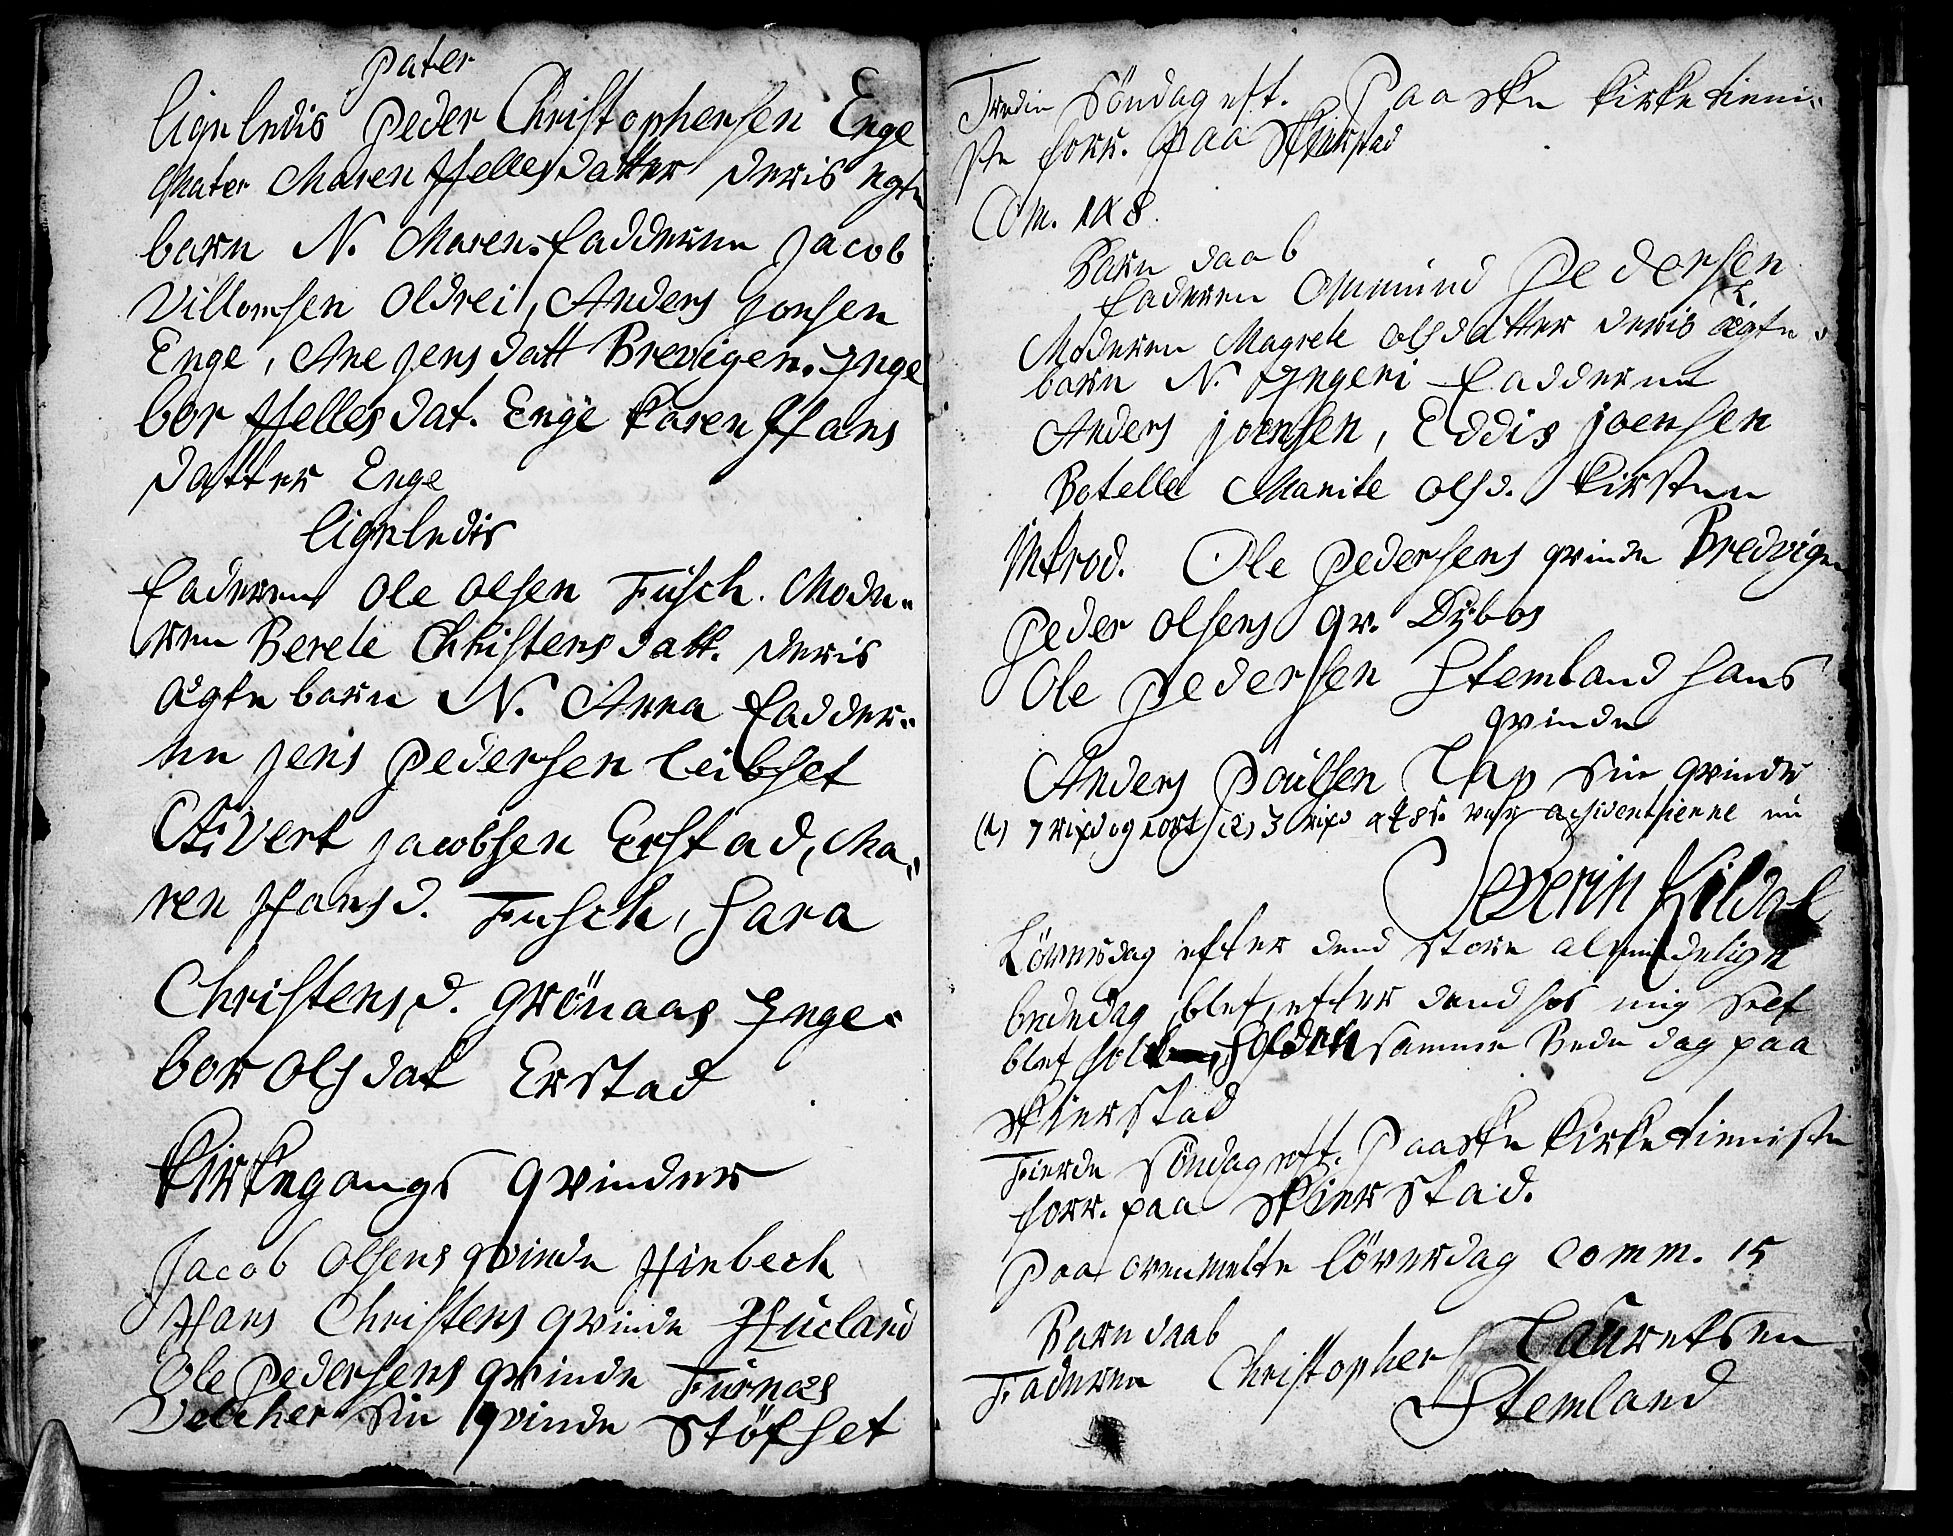 pater
ligeledis Peder Christophersen Enge
Mater Maren Hellesdatter deris egte
barn N. Maren. Fadderne Jacob
Villomsen Oldrei, Anders Jonsen
Enge, Ane Jensdatt Brevigen. Inge
bor Hellesdat. Enge Karen Hans
datter Enge
ligeledis
Faderen Ole Olsen Fusch. Mode„
ren Berete Christensdatt. deris
ægte barn N. Anna Fadder„
ne Jens Pedersen Leibset
Sivert Jacobsen Erstad, Ma„
ren Hansd. Fusch, Sara
Christensd. Grönaas Inge„
bor Olsdat Erstad
Kirkegangs Qvinder
Jacob Olsens qvinde Hinbech
Hans Christens qvinde Hucland
Ole Pedersens qvinde Furnæs
Velcher sin qvinde Stöfset
Tredie Söndag eft. Paaske Kirketieni„
ste forr. paa Skierstad
Com. 108.
Barn daab
Faderen Omund Pedersen
Moderen Magrete Olsdatter deris ægte
barn N. Ingeri Fadderne
Anders Joensen, Eddis Joensen
Botelle Marite Olsd. Kirsten
Introd. Ole Pedersens qvinde Bredvigen
Peder Olsens qv. Dybos
Ole Pedersen Stemland hans
qvinde
Anders Poulsen sin qvinde
7 rixd og 1 ort 3 rixd
Severin Kildal
Löversdag efter dend store almindelige
bededag blef, efter dend hos mig self
blef holden samme Bede dag paa
Skierstad
Fierde Söndag eft. Paaske Kirketieniste
forr. paa Skierstad.
Paa ovenmelte löverdag Comm. 15
Barn daab
Faderen Christopher Lauretsen
Stemland